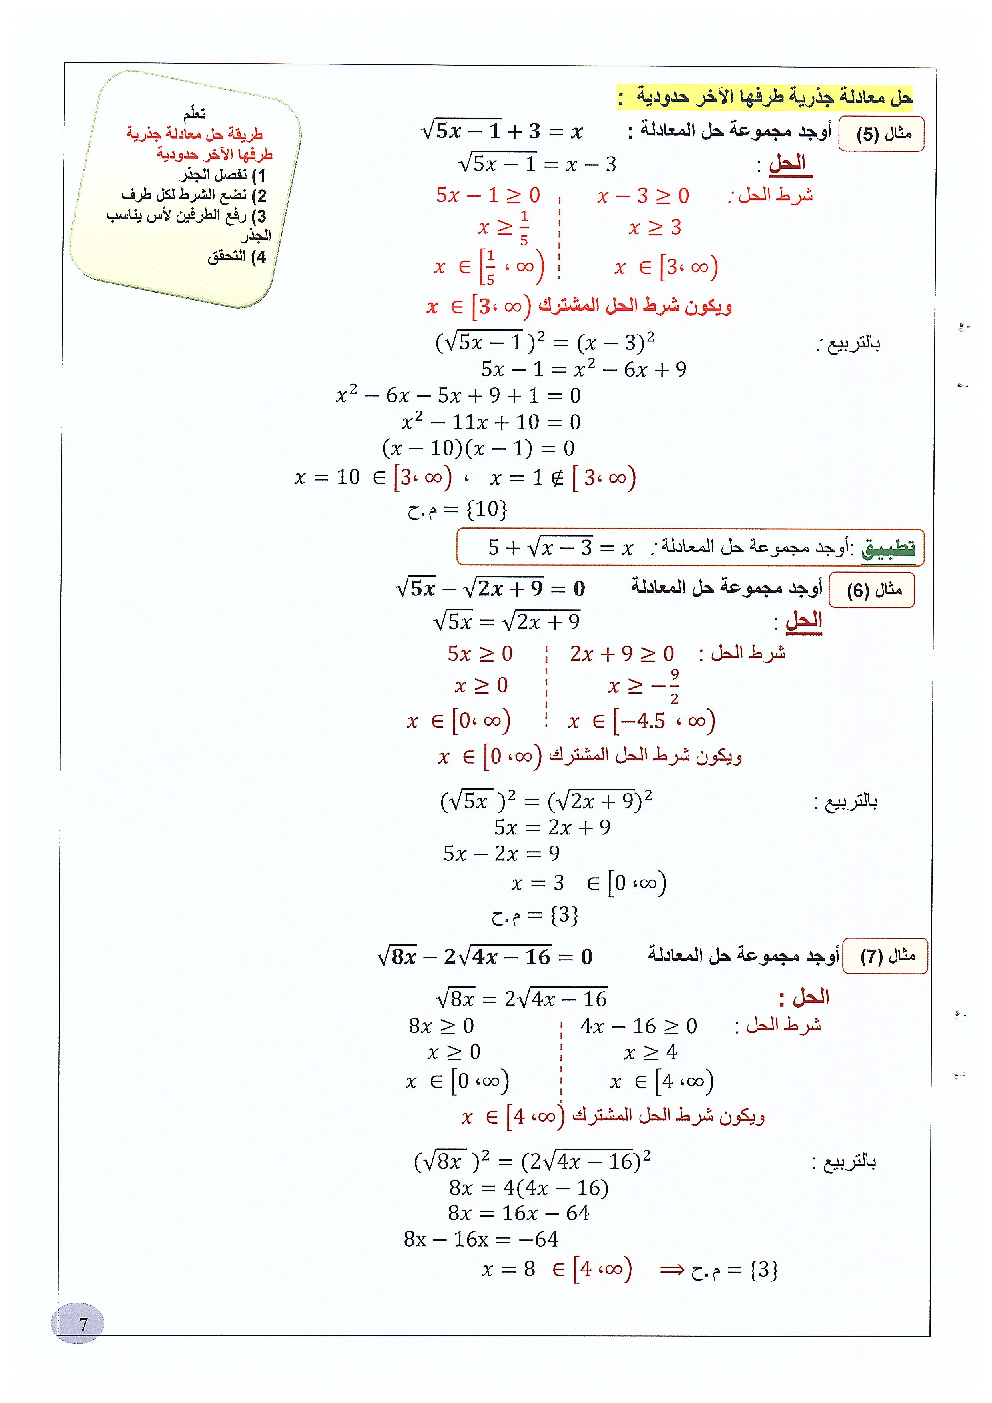 حل معادلة جذرية طرفها الآخر حدودية :
تعلّم
طريقة حل معادلة جذرية
طرفها الآخر حدودية
1) نفصل الجذر
2) نضع الشرط لكل طرف
3) رفع الطرفين لأس يناسب
الجذر
4) التحقق
مثال (5) أوجد مجموعة حل المعادلة : √(5x − 1) + 3 = x
الحل : √(5x − 1) = x − 3
شرط الحل : 5x − 1 ≥ 0 ¦ x − 3 ≥ 0
x ≥ 1/5 ¦ x ≥ 3
x ∈ [1/5 ، ∞) ¦ x ∈ [3، ∞)
ويكون شرط الحل المشترك x ∈ [3، ∞)
بالتربيع : (√(5x − 1))² = (x − 3)²
5x − 1 = x² − 6x + 9
x² − 6x − 5x + 9 + 1 = 0
x² − 11x + 10 = 0
(x − 10)(x − 1) = 0
x = 10 ∈ [3، ∞) ، x = 1 ∉ [ 3، ∞)
م.ح = {10}
تطبيق :أوجد مجموعة حل المعادلة : 5 + √(x − 3) = x
مثال (6) أوجد مجموعة حل المعادلة √(5x) − √(2x + 9) = 0
الحل : √(5x) = √(2x + 9)
شرط الحل : 5x ≥ 0 ¦ 2x + 9 ≥ 0
x ≥ 0 ¦ x ≥ −9/2
x ∈ [0، ∞) ¦ x ∈ [−4.5 ، ∞)
ويكون شرط الحل المشترك x ∈ [0 ،∞)
بالتربيع : (√(5x))² = (√(2x + 9))²
5x = 2x + 9
5x − 2x = 9
x = 3 ∈ [0 ،∞)
م.ح = {3}
مثال (7) أوجد مجموعة حل المعادلة √(8x) − 2√(4x − 16) = 0
الحل : √(8x) = 2√(4x − 16)
شرط الحل : 8x ≥ 0 ¦ 4x − 16 ≥ 0
x ≥ 0 ¦ x ≥ 4
x ∈ [0 ،∞) ¦ x ∈ [4 ،∞)
ويكون شرط الحل المشترك x ∈ [4 ،∞)
بالتربيع : (√(8x))² = (2√(4x − 16))²
8x = 4(4x − 16)
8x = 16x − 64
8x − 16x = −64
x = 8 ∈ [4 ،∞) ⟹ م.ح = {3}
7